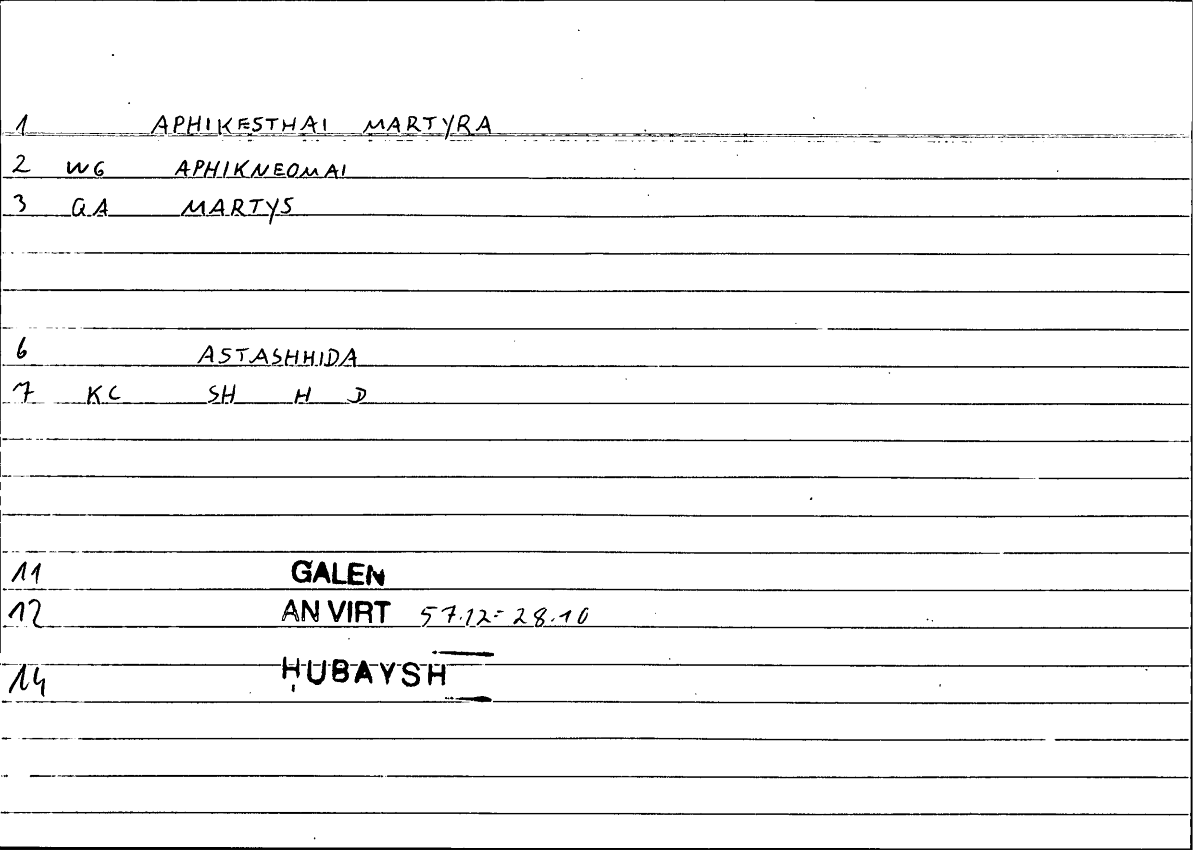 1 APHIKESTHAI MARTYRA
2 WG APHIKNEOMAI
3 QA MARTYS
6 ASTASHHIDA
7 KC SH H D
11 GALEN
12 AN VIRT 57.12 = 28.10
14 ḤUBAYSH